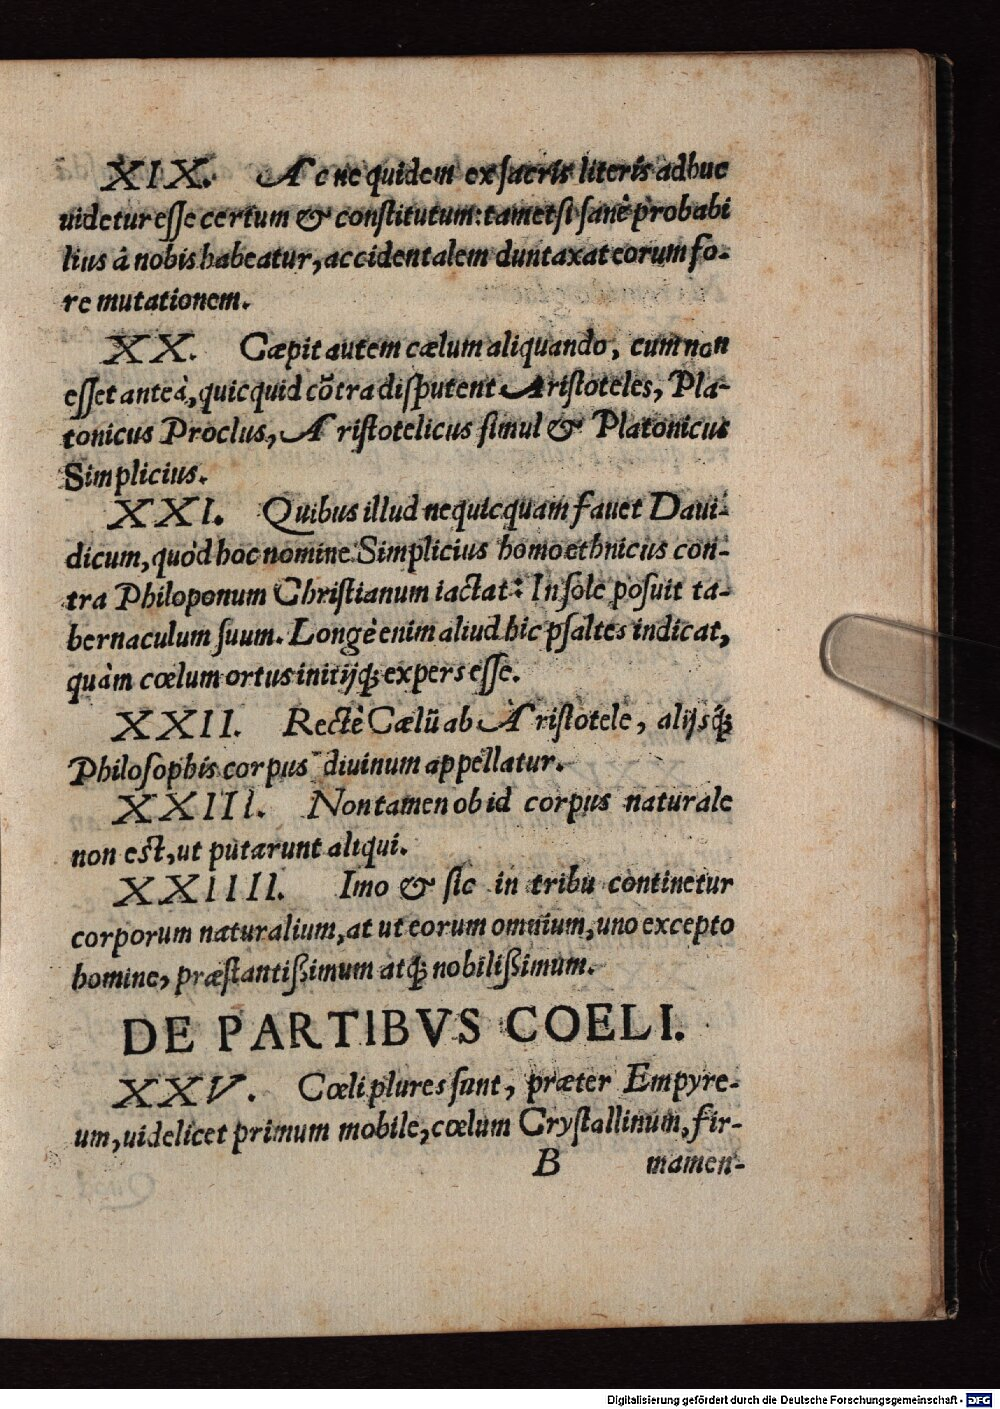 XIX. Ac ne quidem ex sacris literis adhuc
uidetur esse certum & constitutum: tametsi sanè probabi
lius à nobis habeatur, accidentalem duntaxat eorum fo-
re mutationem.
XX. Cæpit autem cælum aliquando, cum non
esset anteà, quicquid cõtra disputent Aristoteles, Pla-
tonicus Proclus, Aristotelicus simul & Platonicus
Simplicius.
XXI. Quibus illud nequicquam fauet Daui-
dicum, quòd hoc nomine Simplicius homo ethnicus con-
tra Philoponum Christianum iactat: In sole posuit ta-
bernaculum suum. Longè enim aliud hic psaltes indicat,
quàm cœlum ortus initijq; expers esse.
XXII. Rectè Cælũ ab Aristotele, alijsq́;
Philosophis corpus diuinum appellatur.
XXIII. Non tamen ob id corpus naturale
non est, ut putarunt aliqui.
XXIIII. Imo & sic in tribu continetur
corporum naturalium, at ut eorum omnium, uno excepto
homine, præstantißimum atq; nobilißimum.
DE PARTIBVS COELI.
XXV. Cœli plures sunt, præter Empyre-
um, uidelicet primum mobile, cœlum Crystallinum, fir-
B mamen-
Digitalisierung gefördert durch die Deutsche Forschungsgemeinschaft - DFG